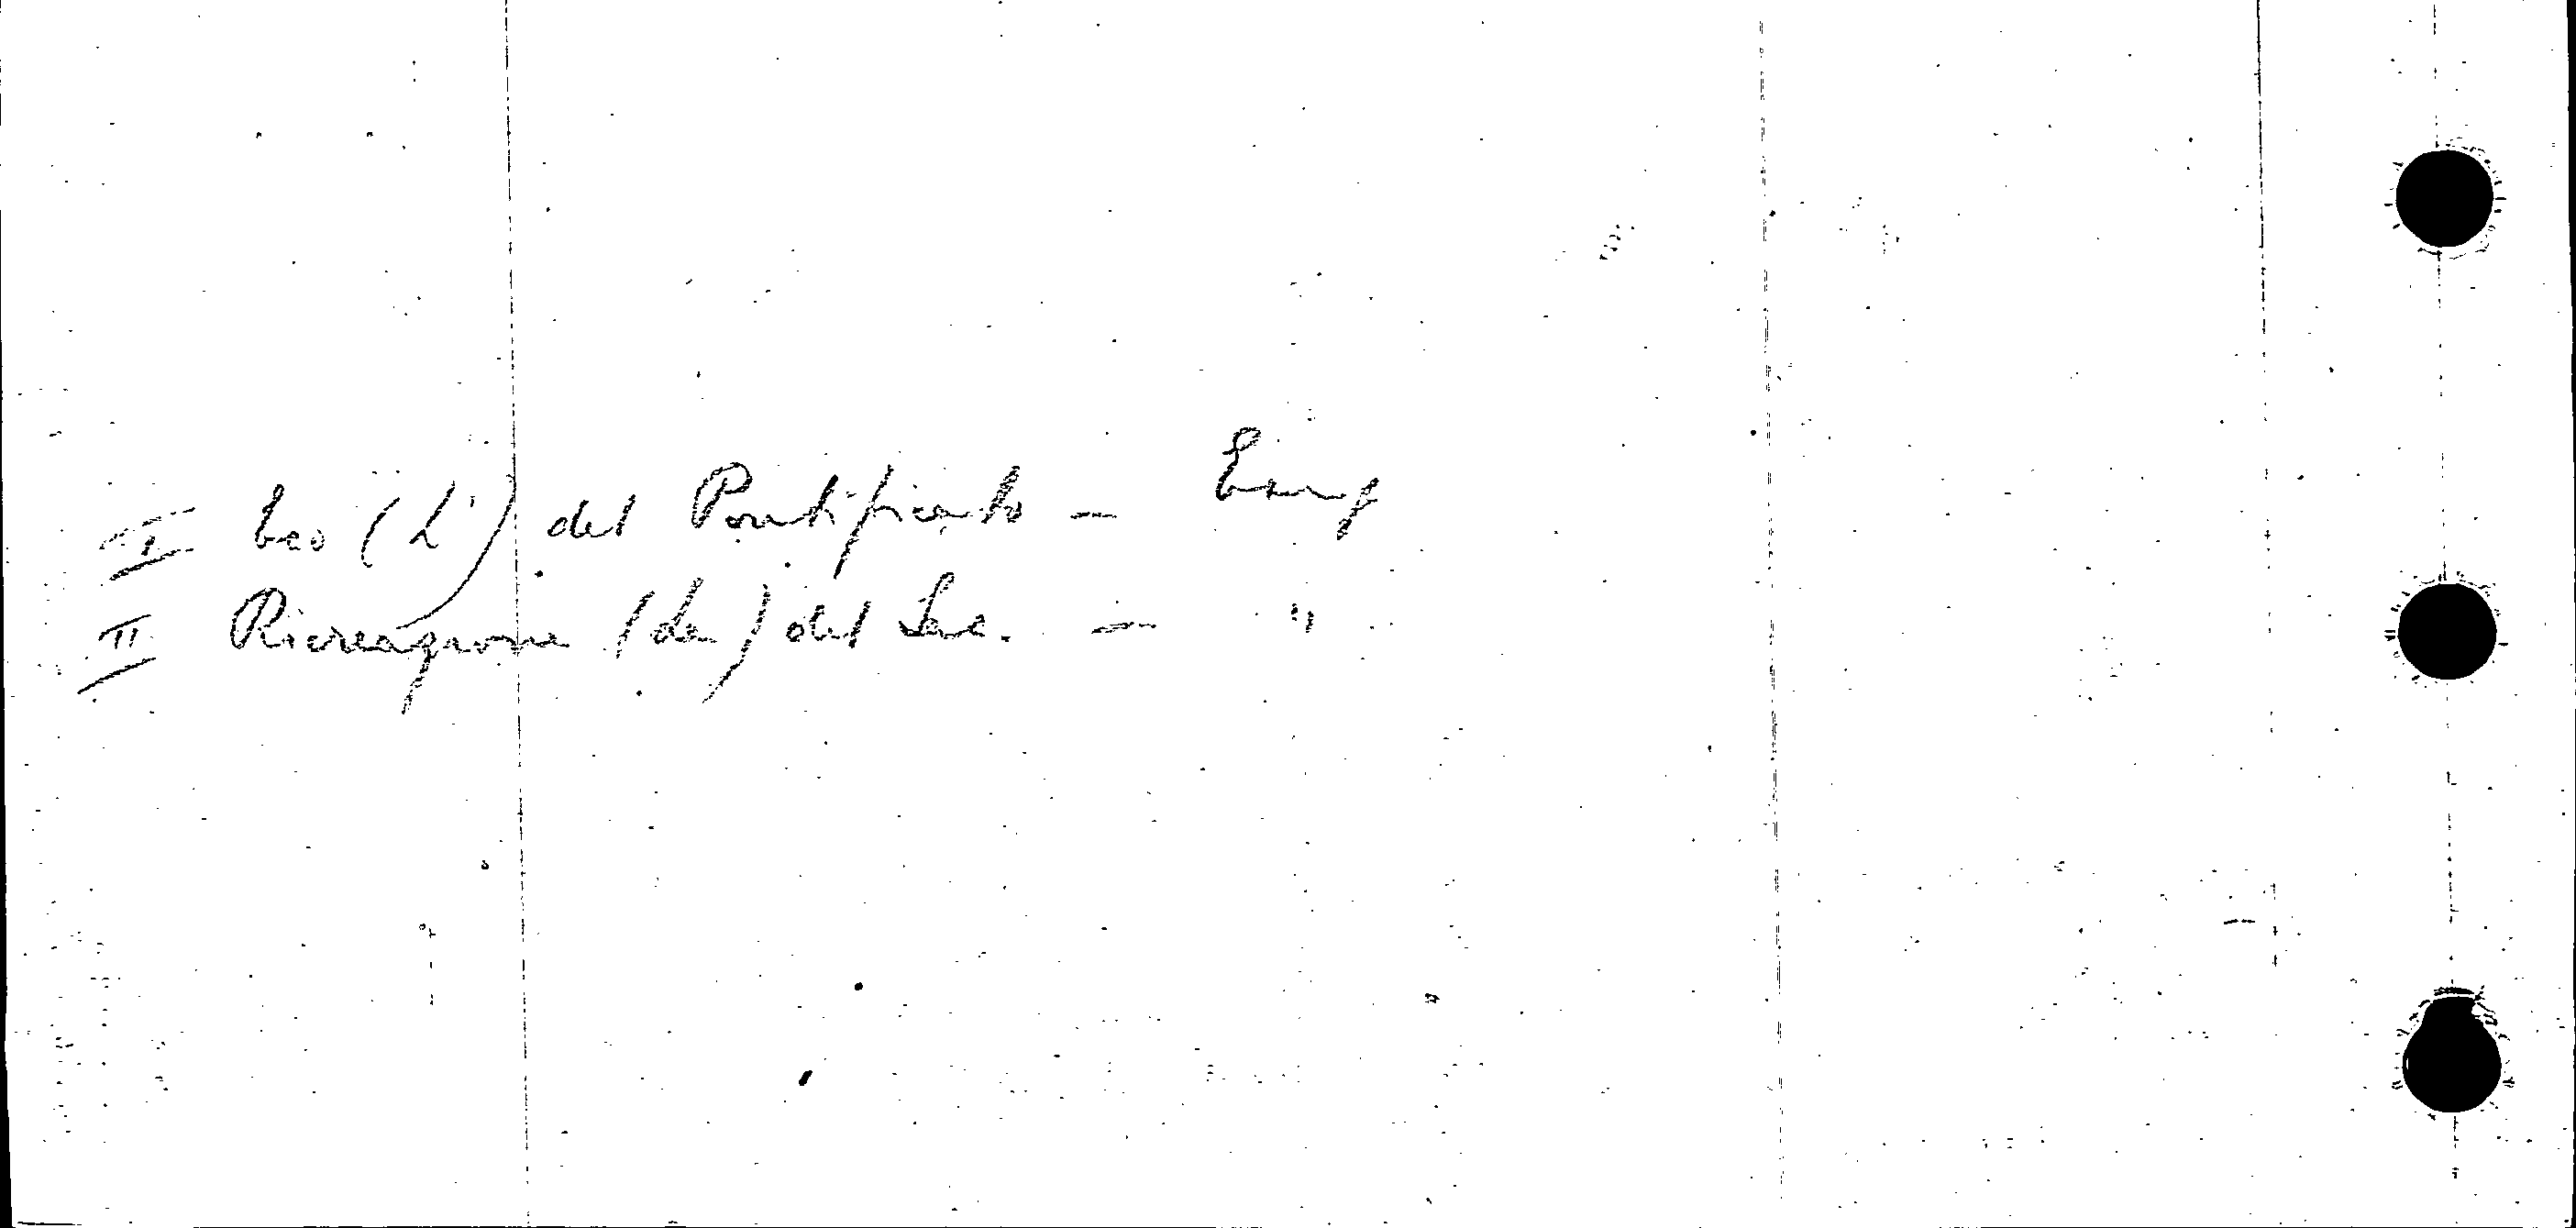 I Eco (L') del Pontificato —
II Ricreazione (La) del Sac. — "